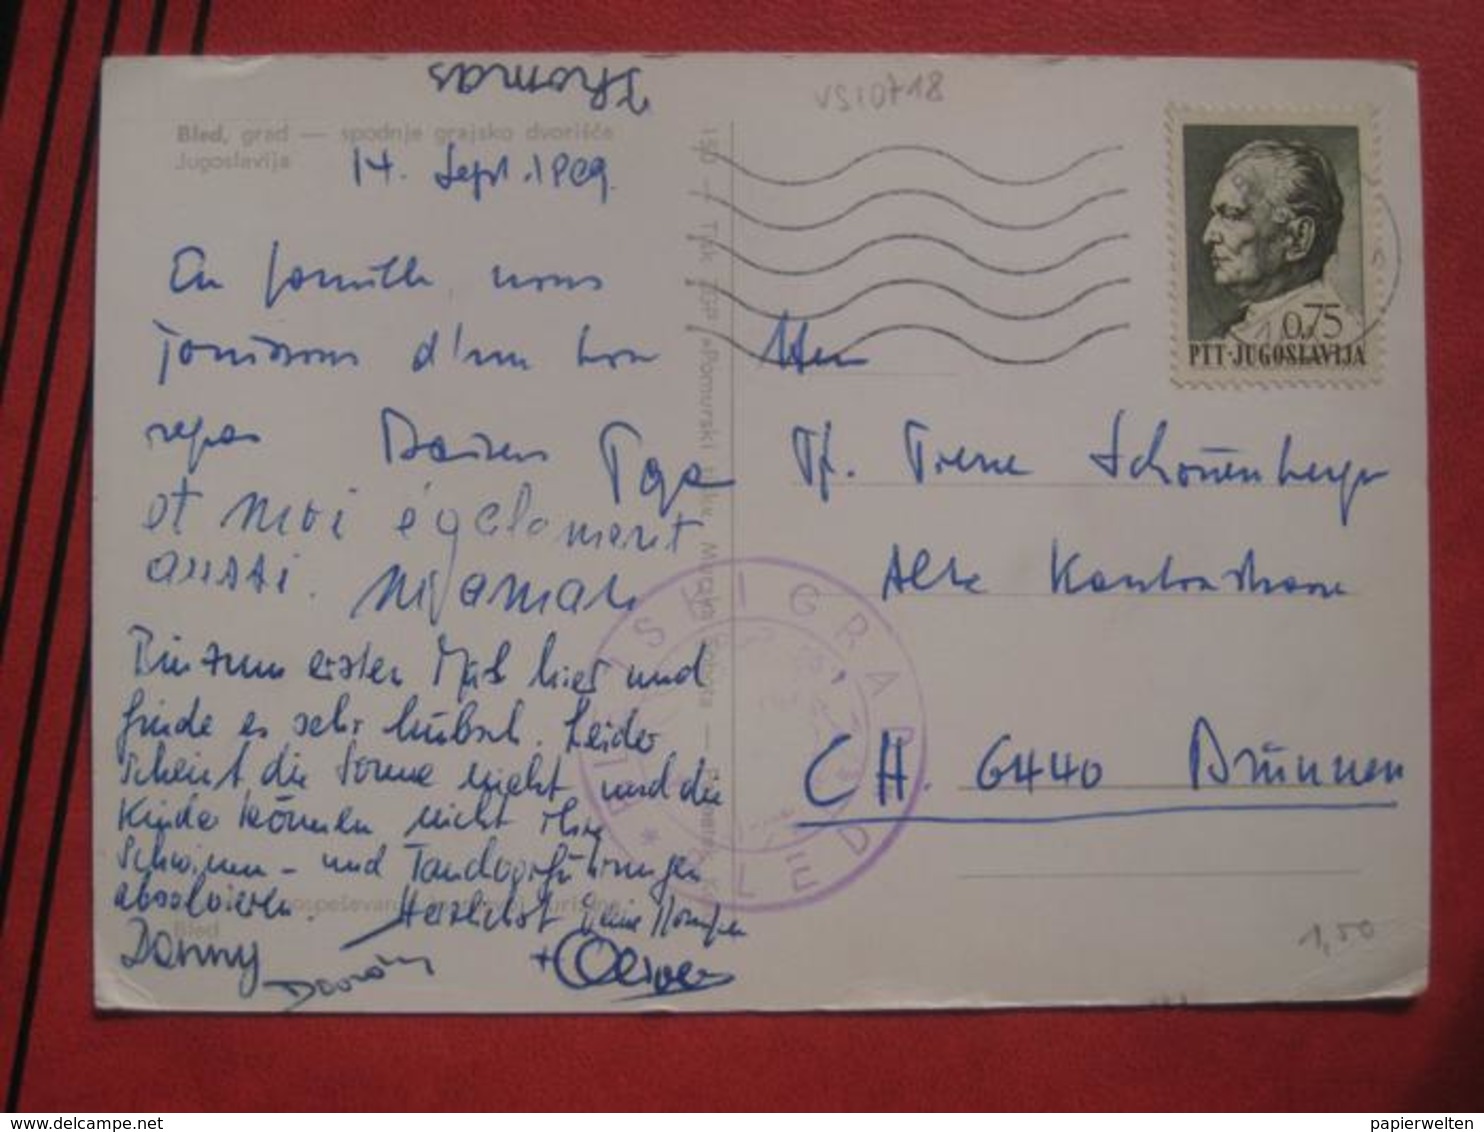 Thomas
VS10718
Bled, grad — spodnje grajsko dvorišče
Jugoslavija
14. Sept. 1969.
En famille nous
jouissons d'un bon
repas Baisers
et moi également
aussi.
Bin zum ersten Mal hier und
finde es sehr hübsch. Leider
scheint die Sonne nicht und die
Kinder können nicht ihre
Schwimm- und Tauchvorführungen
absolvieren. Herzlichst Deine
Danny
+ Oliver
150 — Tisk ZGP »Pomurski tisk« Murska Sobota —
pospeševanje turizma
Bled
BLEJSKI GRAD * BLED
0,75
PTT-JUGOSLAVIJA
Schönenberger
Alte Kantonsstrasse
CH. 6440 Brunnen
1,50
© papierwelten
www.delcampe.net
papierwelten